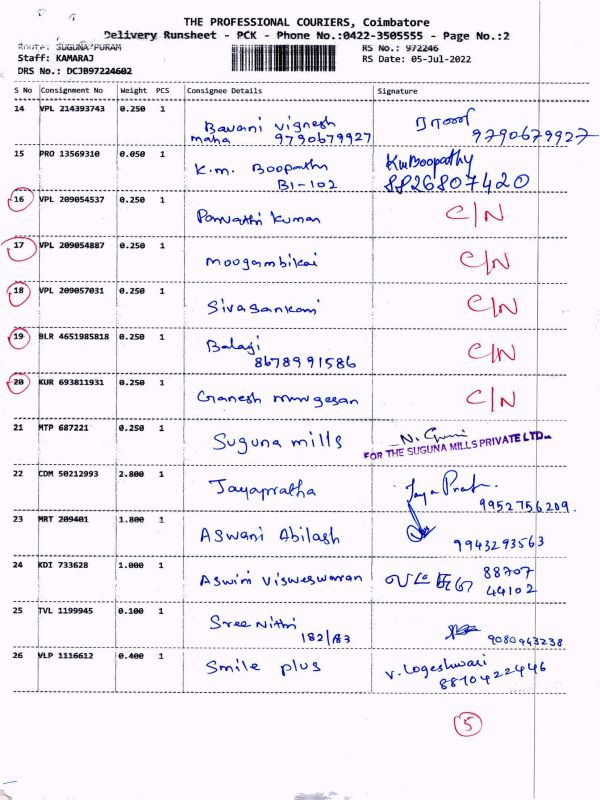 THE PROFESSIONAL COURIERS, Coimbatore
Delivery Runsheet - PCK - Phone No.:0422-3505555 - Page No.:2
Route: SUGUNA PURAM
RS No.: 972246
Staff: KAMARAJ
RS Date: 05-Jul-2022
DRS No.: DCJB97224602
S No Consignment No Weight PCS Consignee Details Signature
14 VPL 214393743 0.250 1 Bavani Vignesh
maha 9790679927 9790679927
15 PRO 13569310 0.050 1 K.m. Boopathy KmBoopathy
B1-102 8826807420
16 VPL 209054537 0.250 1 Parvathi Kumar C/N
17 VPL 209054887 0.250 1 Moogambikai C/N
18 VPL 209057031 0.250 1 Sivasankari C/N
19 BLR 4651985818 0.250 1 Balaji C/N
8678991586
20 KUR 693811931 0.250 1 Ganesh murugesan C/N
21 MTP 687221 0.250 1 Suguna mills
FOR THE SUGUNA MILLS PRIVATE LTD..
22 CDM 50212993 2.800 1 Jayapratha Jaya Prath
9952756209.
23 MRT 209401 1.800 1 Aswani Abilash 9943293563
24 KDI 733628 1.000 1 Aswini Visweswaran 88707
44102
25 TVL 1199945 0.100 1 Sree Nithi
182/183 9080943238
26 VLP 1116612 0.400 1 Smile plus V. Logeshwari
8870422446
5